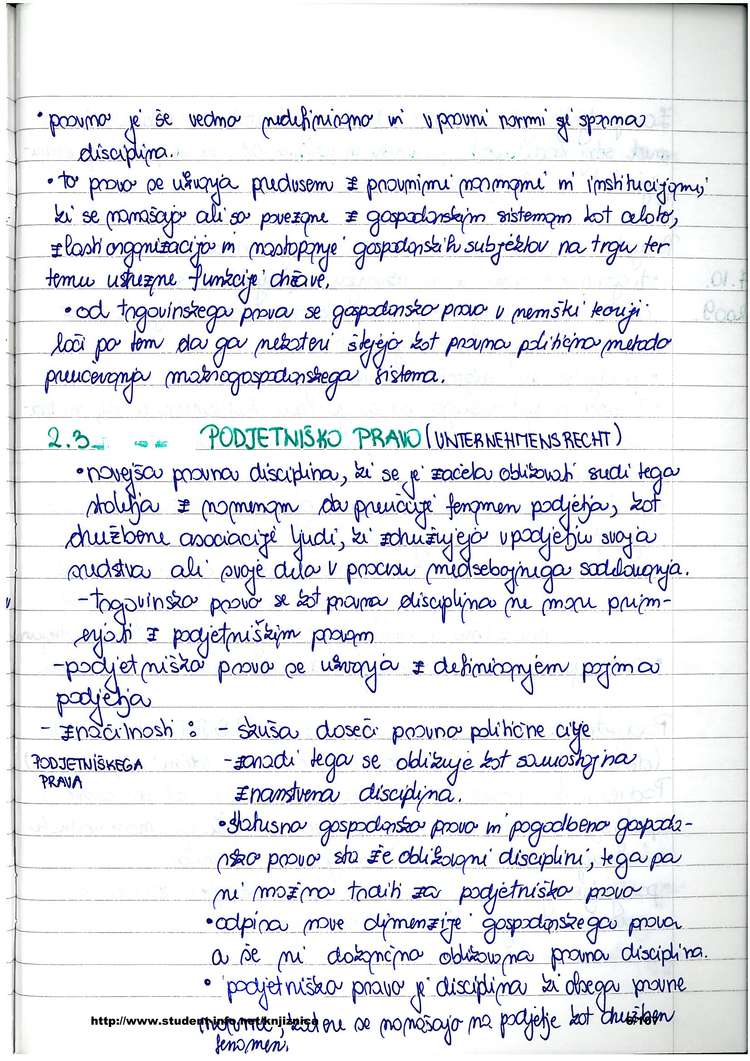 • pravno je še vedno nedefinirano in v pravni normi je sporna
disciplina.
• to pravo se ukvarja predvsem z pravnimi normami in institucijami,
ki se nanašajo ali so povezane z gospodarskim sistemom kot celoto,
zlasti organizacijo in nastopanje gospodarskih subjektov na trgu ter
temu ustrezne funkcije države.
• od trgovinskega prava se gospodarsko pravo v nemški teoriji
loči po tem da ga nekateri štejejo kot pravno politično metodo
preučevanja gospodarskega sistema.
2.3. PODJETNIŠKO PRAVO (UNTERNEHMENSRECHT)
• novejša pravna disciplina, ki se je začela oblikovati sredi tega
stoletja z namenom da preučuje fenomen podjetja, kot
družbene asociacije ljudi, ki združujejo v podjetju svoja
sredstva ali svoje delo v procesu medsebojnega sodelovanja.
- trgovinsko pravo se kot pravna disciplina ne more prim-
erjati z podjetniškim pravom
- podjetniško pravo se ukvarja z definiranjem pojma
podjetja
- značilnosti : - skuša doseči pravno politične cilje
(PODJETNIŠKEGA - zaradi tega se oblikuje kot samostojna
PRAVA znanstvena disciplina.
• statusno gospodarsko pravo in pogodbeno gospoda-
rsko pravo sta že oblikovani disciplini, tega pa
ni možno trditi za podjetniško pravo
• odpira nove dimenzije gospodarskega prava
a še ni dokončno oblikovana pravna disciplina.
• podjetniško pravo je disciplina ki obsega pravne
norme katere se nanašajo na podjetje kot družben
fenomen.
http://www.student-info.net/knjiznica